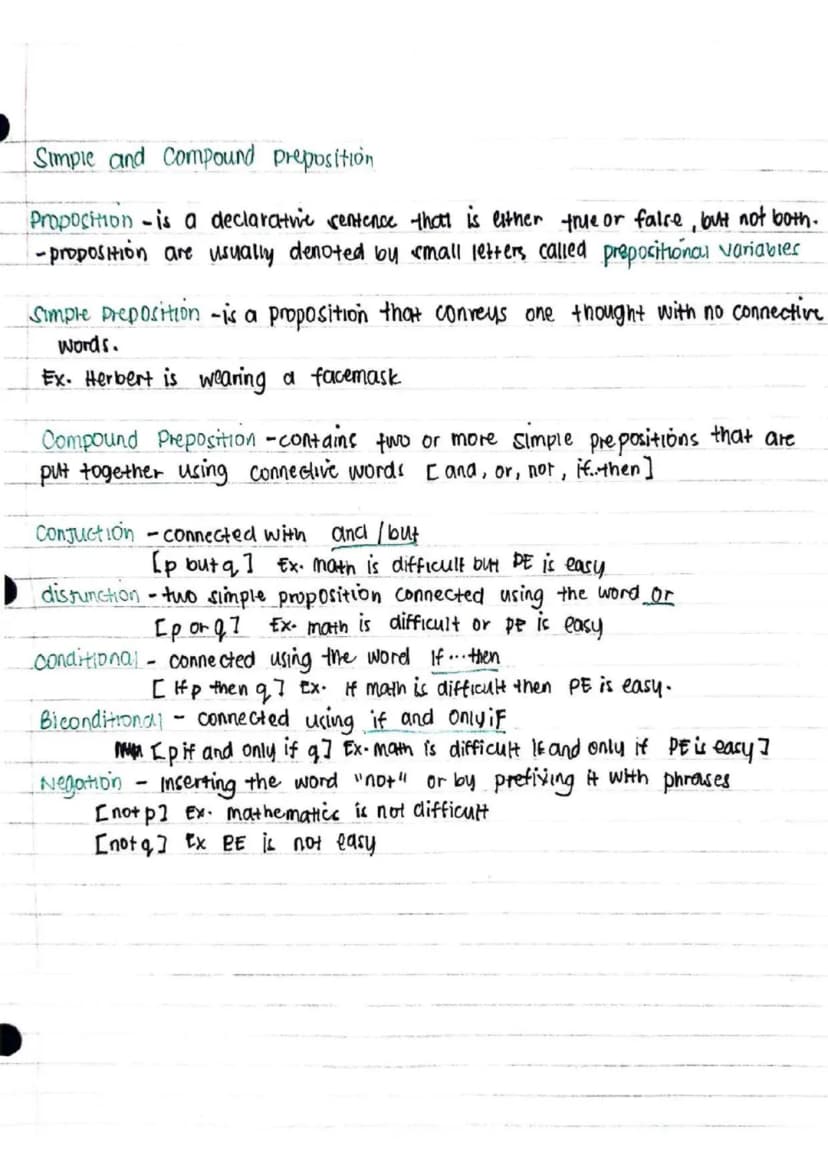 Simple and Compound Preposition
Proposition - is a declarative sentence that is either true or false, but not both.
- proposition are usually denoted by small letters called prepositional variables
Simple Preposition - is a proposition that conveys one thought with no connective
words.
Ex. Herbert is wearing a facemask
Compound Preposition - contains two or more simple prepositions that are
put together using connective words [and, or, not, if..then]
Conjuction - connected with and / but
[p but q] Ex. math is difficult but PE is easy
disjunction - two simple proposition connected using the word or
[p or q] Ex. math is difficult or PE is easy
conditional - connected using the word If...then
[If p then q] Ex. If math is difficult then PE is easy.
Biconditional - connected using if and only if
[p if and only if q] Ex. math is difficult if and only if PE is easy]
Negation - inserting the word "not" or by prefixing it with phrases
[not p] Ex. mathematics is not difficult
[not q] Ex PE is not easy